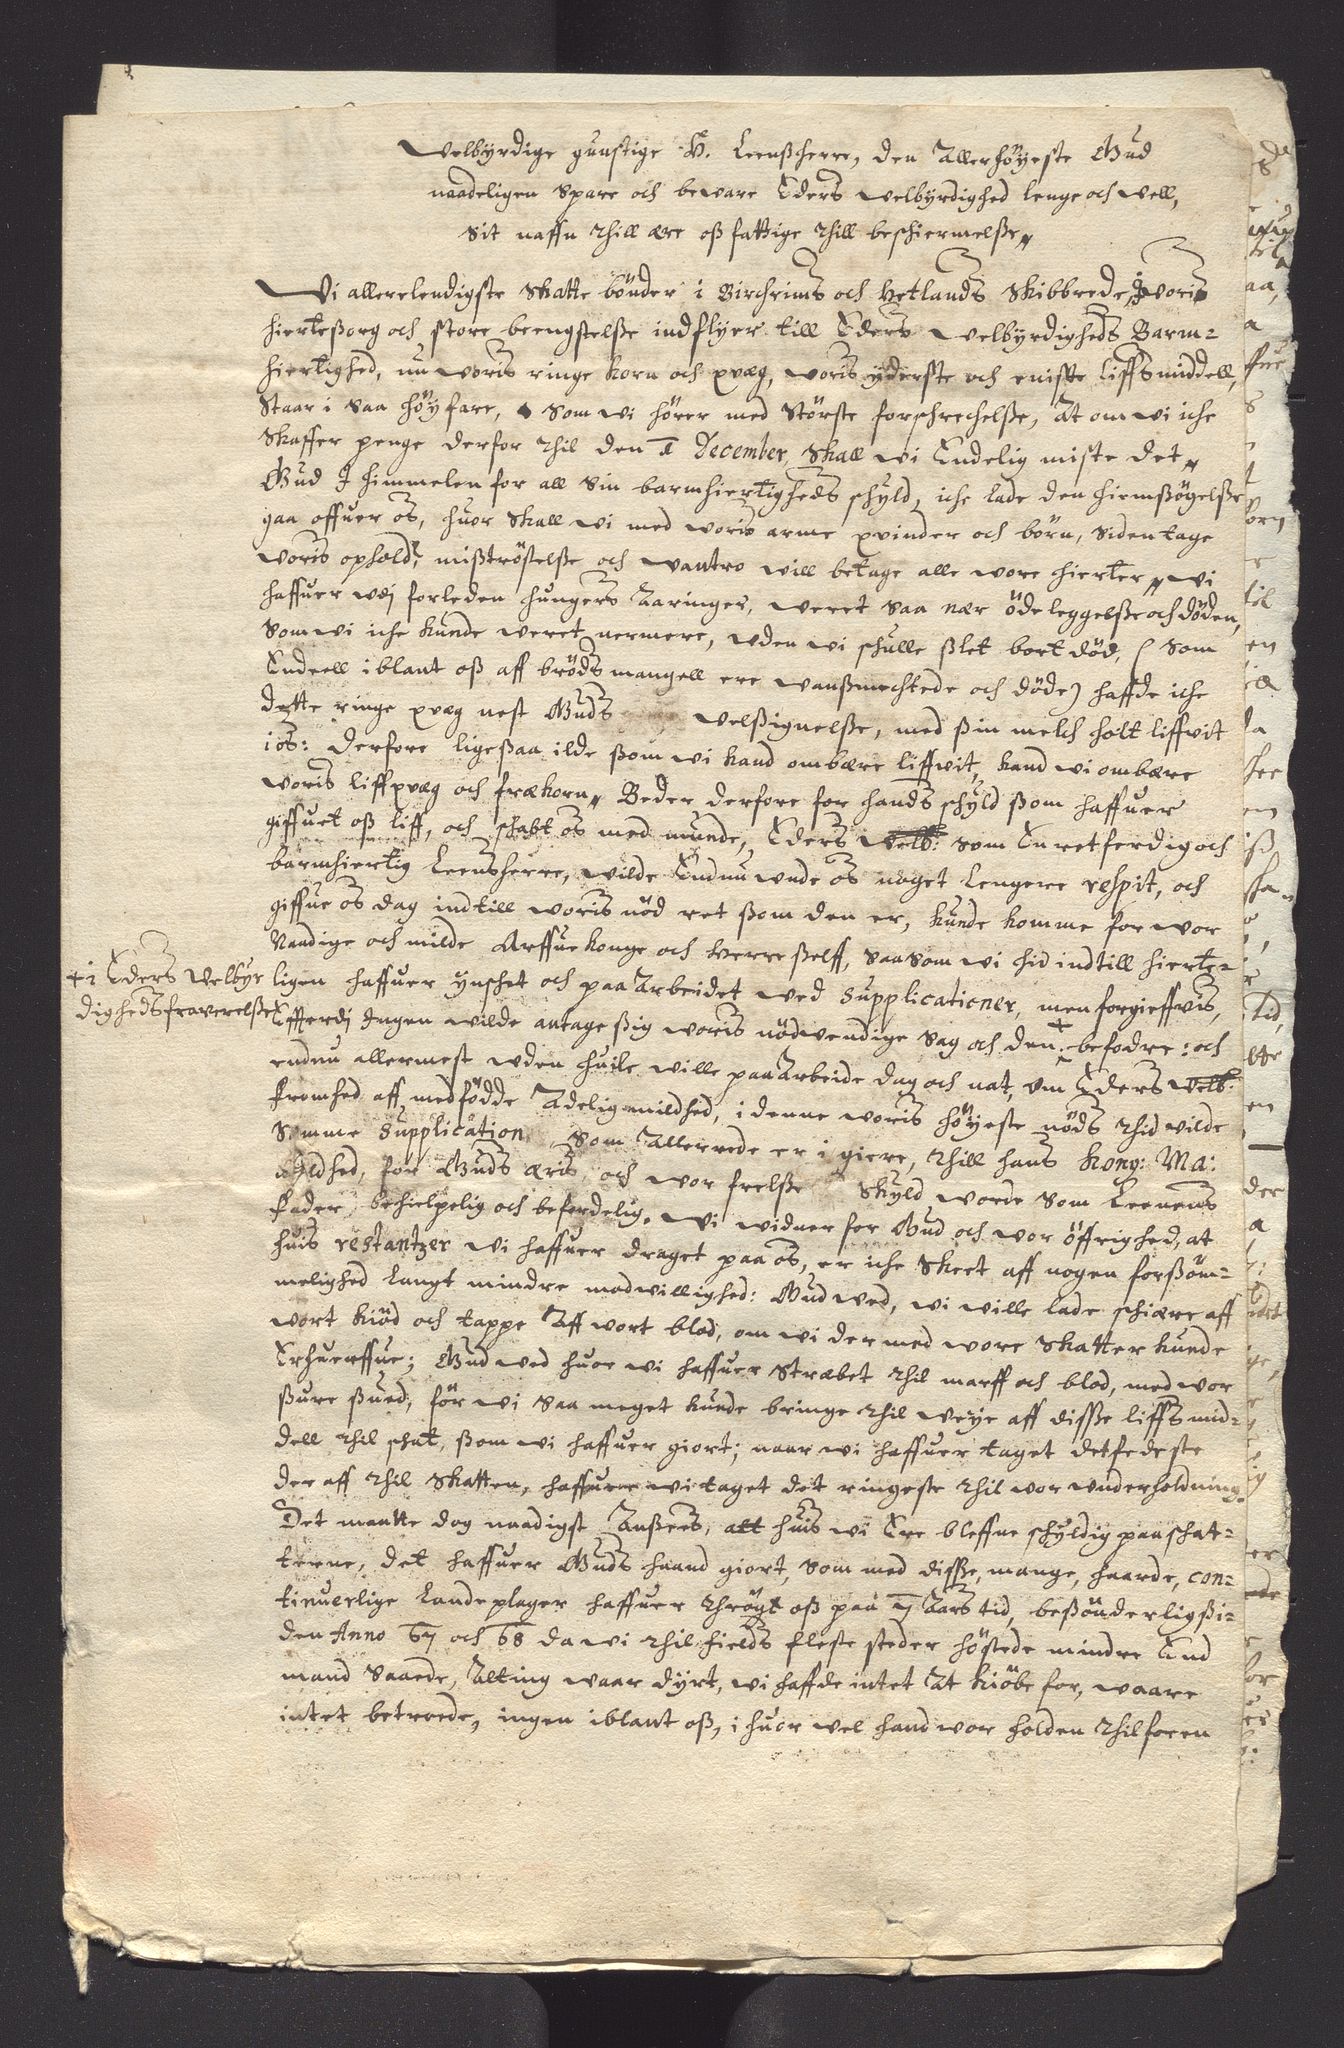 Welbyrdige gunstige H. Leenßherre, den Allerhöyeste Gud
naadeligen Spare och beware Eders Welbyrdighed lenge och well,
Sit naffn thill ære oß fattige thill beschiermelße„
Wi allerelendigste Skatte bönder i Birchrims och Hetlands Skibbrede, i woris
hierteßorg och store beengstelße indflyer till Eders Welbyrdigheds Barm=
hiertighed, nu woris ringe korn och qvæg, woris yderste och eniste liffsmiddell,
Staar i Saa höy fare, Som wi hörer med Störste forschrechelße, At om wi iche
Skaffer penge derfor thil den 1 December, Skall wi Endelig miste det„
Gud I himmelen for all Sin barmhiertigheds schyld, iche lade den hiemßögelße
gaa offuer os, huor Skall wi med woris arme qvinder och börn, Siden tage
woris ophold, miströstelße och wantro will betage alle wore hierter„ Wi
haffuer udj forleden hungers Aaringer, weret Saa nær ödeleggelße och döden,
Som wi iche kunde weret nermere, uden wi schulle ßlet bort död, (Som
Endeell iblant oß aff bröds mangell ere wanßmechtede och döde) haffde iche
dette ringe qvæg nest Guds Welßignelße, med ßin melch holt liffvit
i os: Derfore ligeßaa ilde ßom wi kand ombære liffvit, kand wi ombære
woris liffqvæg och frækorn„ Beder derfore for hands schyld ßom haffuer
giffuet oß liff, och schabt os med munde, Eders Welb: Som En retferdig och
barmhiertig Leensherre, wilde Endnu unde os noget Lengere respit, och
giffue os dag indtill woris nöd ret ßom den er, kunde komme for wor
Naadige och milde Arffue konge och Herre ßelff, Saa Som wi hid indtill hierte=
+ i Eders Welbyr
digheds fraverelße
ligen haffuer ynschet och paa Arbeidet ved Supplicationer, men forgieffvis,
Effterdj Ingen wilde antage ßig woris nödwendige Sag och den + befodre: och
endnu allermest uden huile wille paaArbeide dag och nat, Om Eders Welb:
fromhed aff medfödde Adelig mildhed, i denne woris höyeste nöds thid wilde
Samme Supplication Som Allerrede er i giere, thill hans Kong: Ma:
mildhed, for Guds æris och wor frelße Skyld worde Som Leenens
fader, behielpelig och beforderlig. Wi widner for Gud och wor öffrighed, at
huis restantzer wi haffuer draget paa os, er iche Skeet aff nogen forßöm=
melighed Langt mindre modwillighed: Gud wed, wi wille lade schiære aff
wort kiöd och tappe Aff wort blod, om wi dermed wore Skatter kunde
Erhuerffue; Gud wed huor wi haffuer Stræbet thil marff och blod, med wor
ßure ßued, för wi Saa meget kunde bringe thil weye aff disße liffsmid=
dell thil schat, ßom wi haffuer giort; naar wi haffuer taget det fedeste
der aff thil Skatten, haffuer wi taget det ringeste thil wor underholdning.
Det maatte dog naadigst Anßees, att huis wi Ere bleffne schyldig paa schat=
terne, det haffuer Guds haand giort, Som med disße, mange, haarde, con=
tinuerlige Landeplager haffuer thrögt oß paa 7 Aars tid, beßönderlig ßi=
den Anno 67 och 68 da wi thil fields fleste steder höstede mindre End
mand Saaede, Alting waar dyrt, wi haffde intet At kiöbe for, waare
intet betroede, ingen iblant oß, i huor wel hand wor holden thilforen